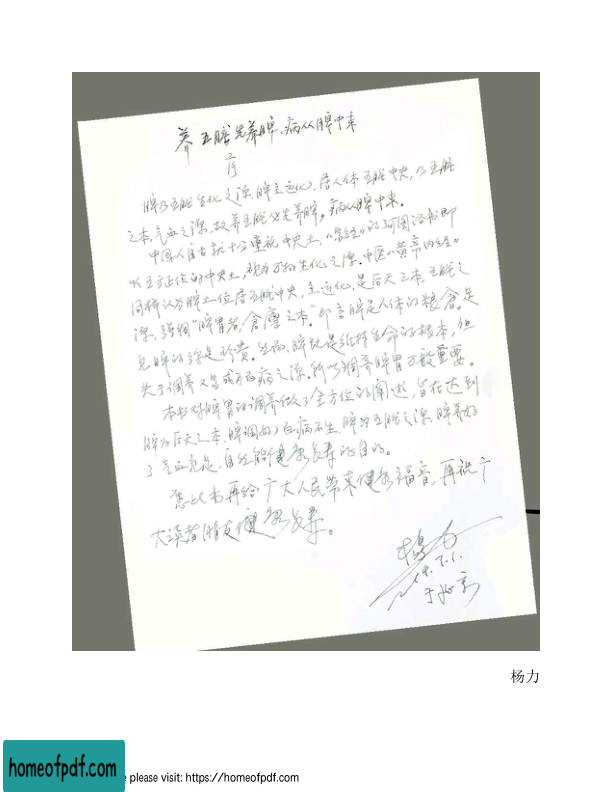 养五脏先养脾、病从脾中来
序
脾乃五脏生化之源,脾主运化,居人体五脏中央,乃五脏
之本,气血之源,故养五脏必先养脾。病从脾中来。
中国人自古就十分重视中央土,《易经》的河图洛书即
以五方正位的中央土,视为万物生化之源。中医《黄帝内经》
同样认为脾土位居五脏中央,主运化,是后天之本,五脏之
源,强调“脾胃者,仓廪之本。”即言脾是人体的粮仓。足
见脾的强是珍贵。然而,脾既是维持生命的根本,但
失于调养又易成百病之源。所以调养脾胃万般重要。
本书对脾胃的调养做了全方位的阐述,旨在达到
脾为后天之本,脾调好了百病不生,脾为五脏之源,脾养好
了气血充足,自然能健康长寿的目的。
愿此书再给广大人民带来健康福音,再祝广
大读者朋友健康长寿。
杨力
于北京
杨力
homeofpdf.com
e please visit: https://homeofpdf.com